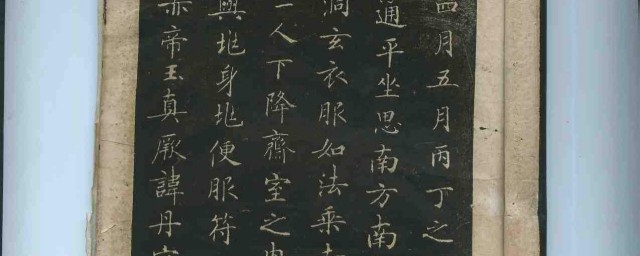 四月五月丙丁之
通平坐思南方南
洞玄衣服如法乘
二人下降齋室之
與地身地便服符
赤帝玉真厥諱丹